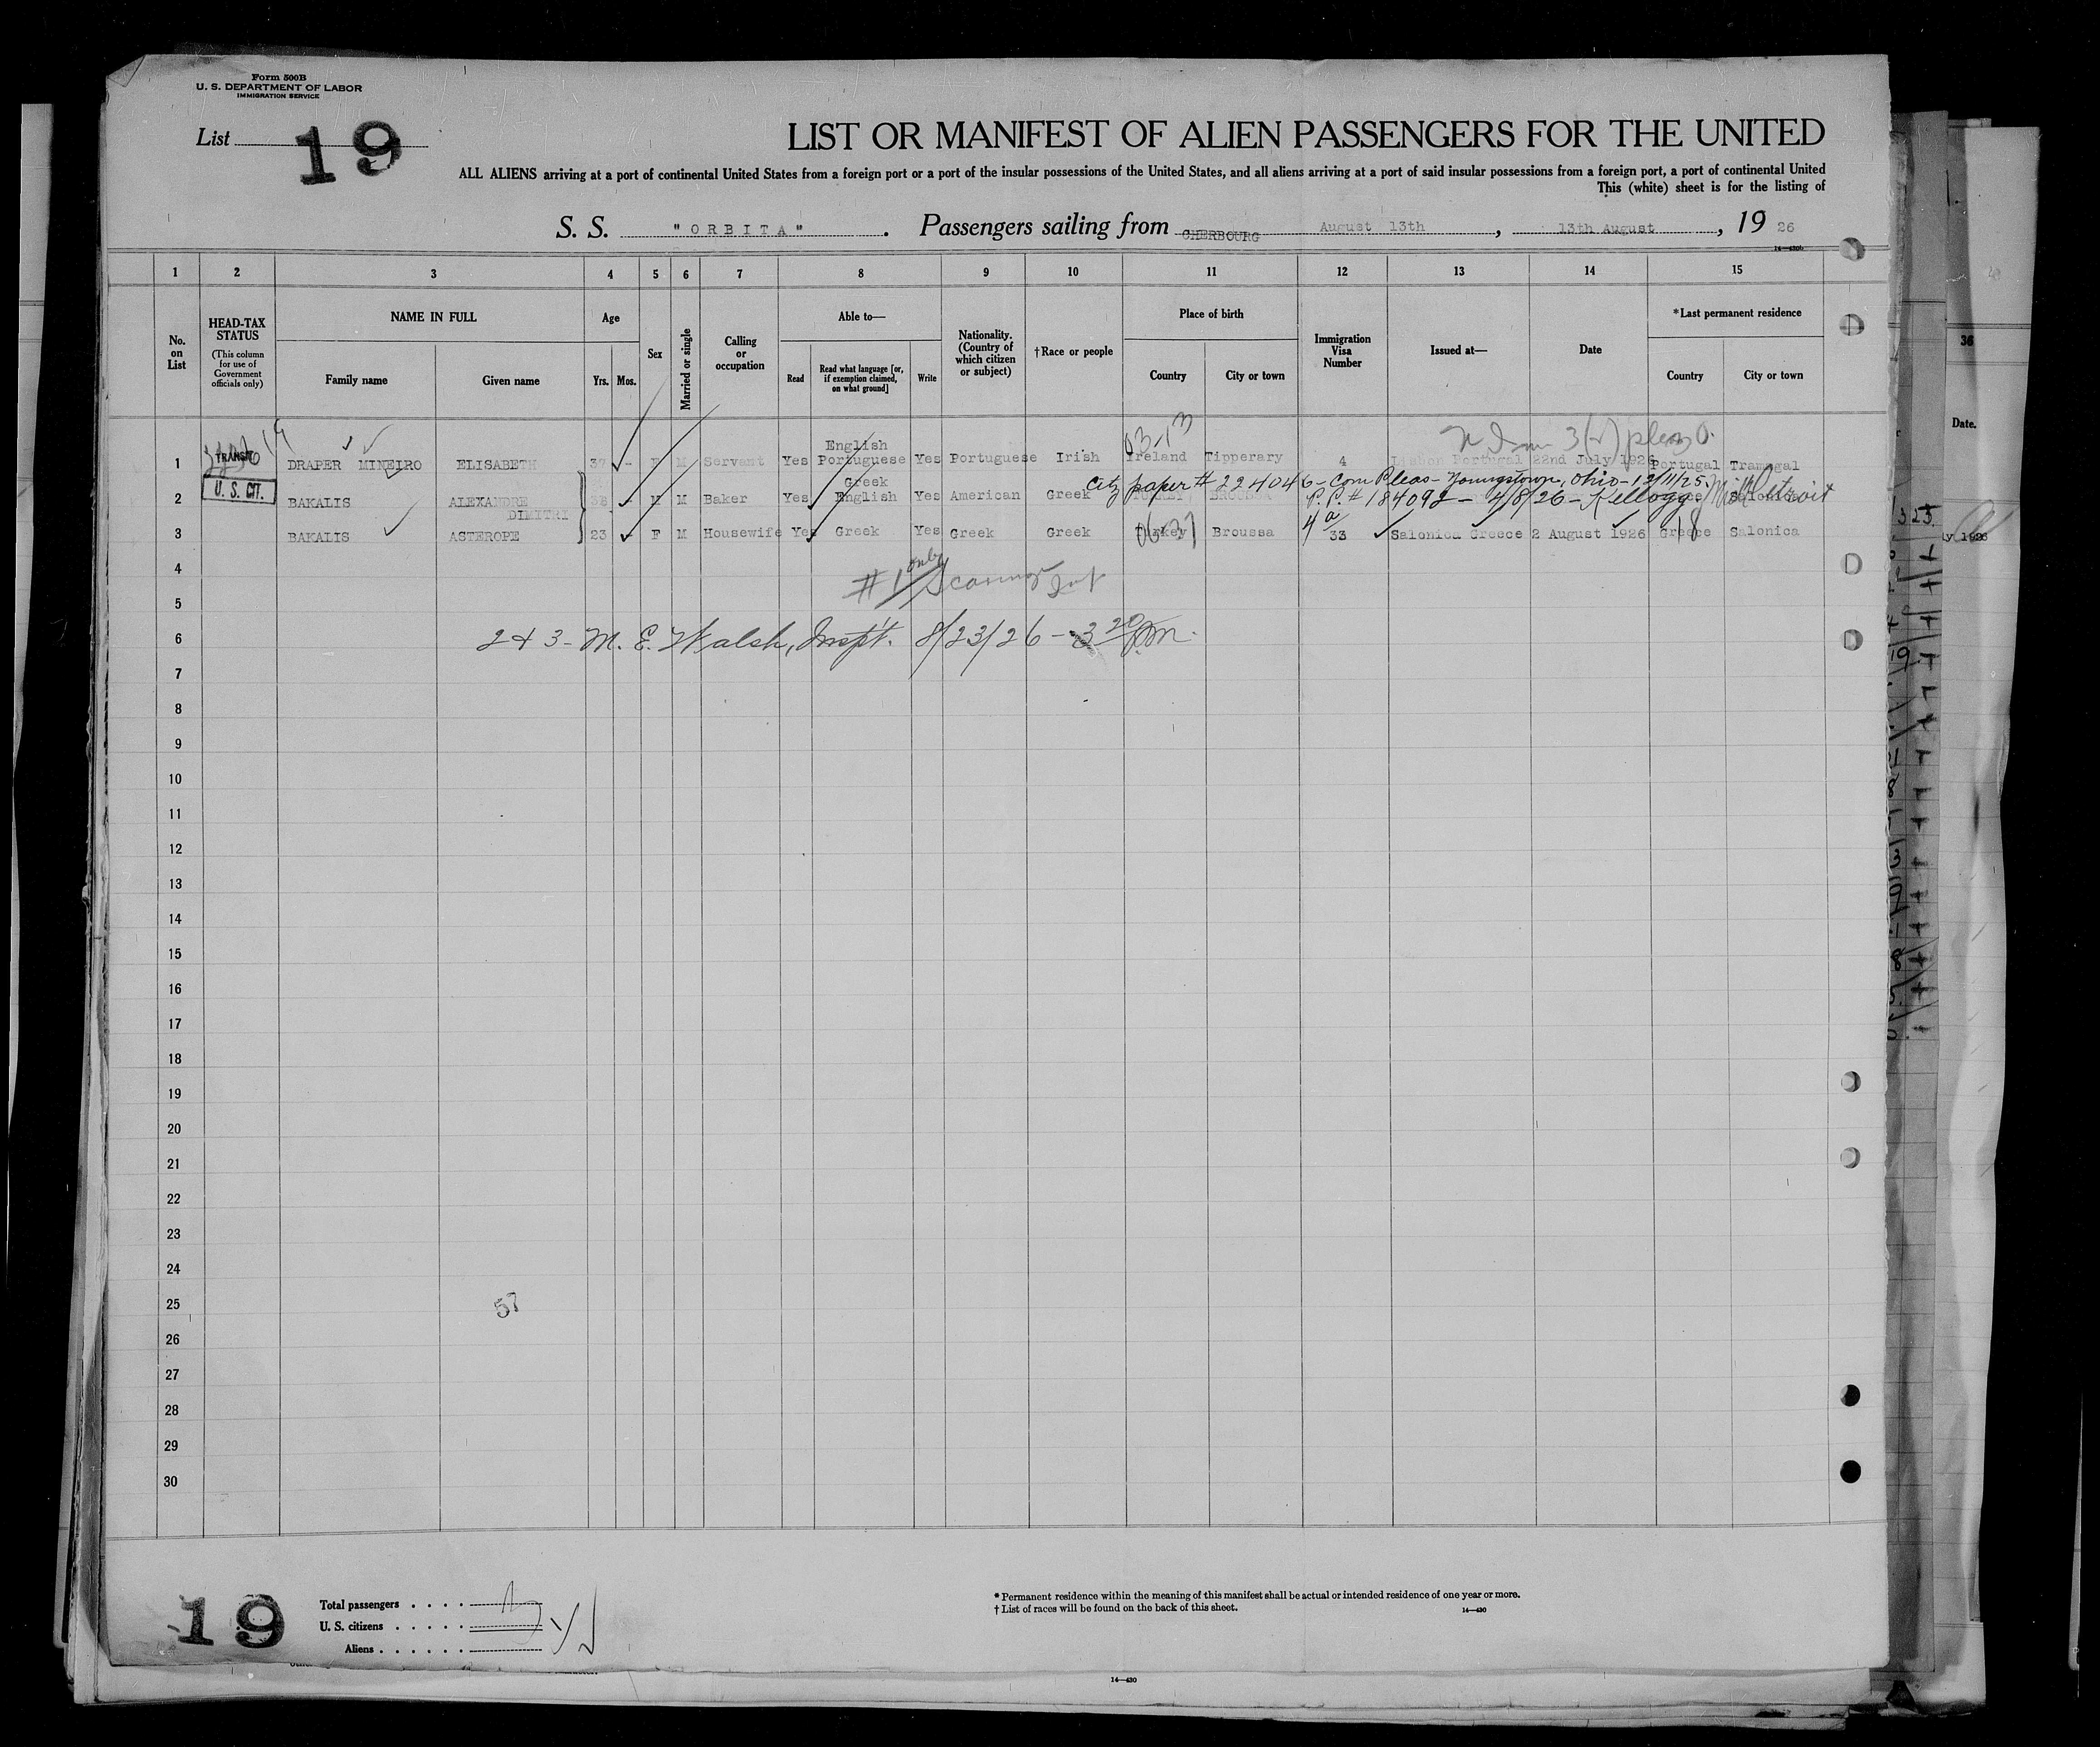 Form 500B
U. S. DEPARTMENT OF LABOR
IMMIGRATION SERVICE
List 19
LIST OR MANIFEST OF ALIEN PASSENGERS FOR THE UNITED
ALL ALIENS arriving at a port of continental United States from a foreign port or a port of the insular possessions of the United States, and all aliens arriving at a port of said insular possessions from a foreign port, a port of continental United
This (white) sheet is for the listing of
S. S. "ORBITA". Passengers sailing from CHERBOURG August 13th, 13th August, 19 26
1 2 3 4 5 6 7 8 9 10 11 12 13 14 15
No. on List
HEAD-TAX STATUS
(This column for use of Government officials only)
NAME IN FULL
Family name
Given name
Age
Yrs. Mos.
Sex
Married or single
Calling or occupation
Able to—
Read
Read what language [or, if exemption claimed, on what ground]
Write
Nationality. (Country of which citizen or subject)
†Race or people
Place of birth
Country
City or town
Immigration Visa Number
Issued at—
Date
*Last permanent residence
Country
City or town
1 TRANSIT DRAPER MINEIRO ELISABETH 37 - F M Servant Yes English Portuguese Yes Portuguese Irish 03-13 Ireland Tipperary 4 Lisbon Portugal 22nd July 1926 Portugal Tramagal
Citz paper # 224046 - Com Pleas - Youngstown, Ohio - 12/11/25.
2 U. S. CIT. BAKALIS ALEXANDRE DIMITRI 38 - M M Baker Yes Greek English Yes American Greek BROUSSA P.P. # 184092 - 4/8/26 - Kellogg
3 BAKALIS ASTEROPE 23 - F M Housewife Yes Greek Yes Greek Greek 06-37 Turkey Broussa 4a/ 33 Salonica Greece 2 August 1926 Greece 18 Salonica
4
#1 only
5
6 2 & 3 - M. E. Walsh, Inspt. 8/23/26 - 3 20 P.M.
7
8
9
10
11
12
13
14
15
16
17
18
19
20
21
22
23
24
25
57
26
27
28
29
30
19
Total passengers
U. S. citizens
Aliens
* Permanent residence within the meaning of this manifest shall be actual or intended residence of one year or more.
† List of races will be found on the back of this sheet.
14—430
14—430
36
Date.